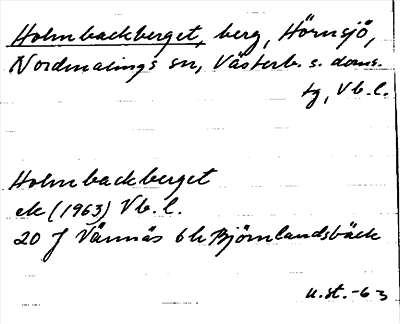 Holmbackberget, berg, Hörnsjö,
Nordmalings sn, Västerb. s. doms.
tg, Vb.l.
Holmbackberget
ek (1963) Vb.l.
20 J Vännäs 6 h Björnlandsbäck
u.st.-63